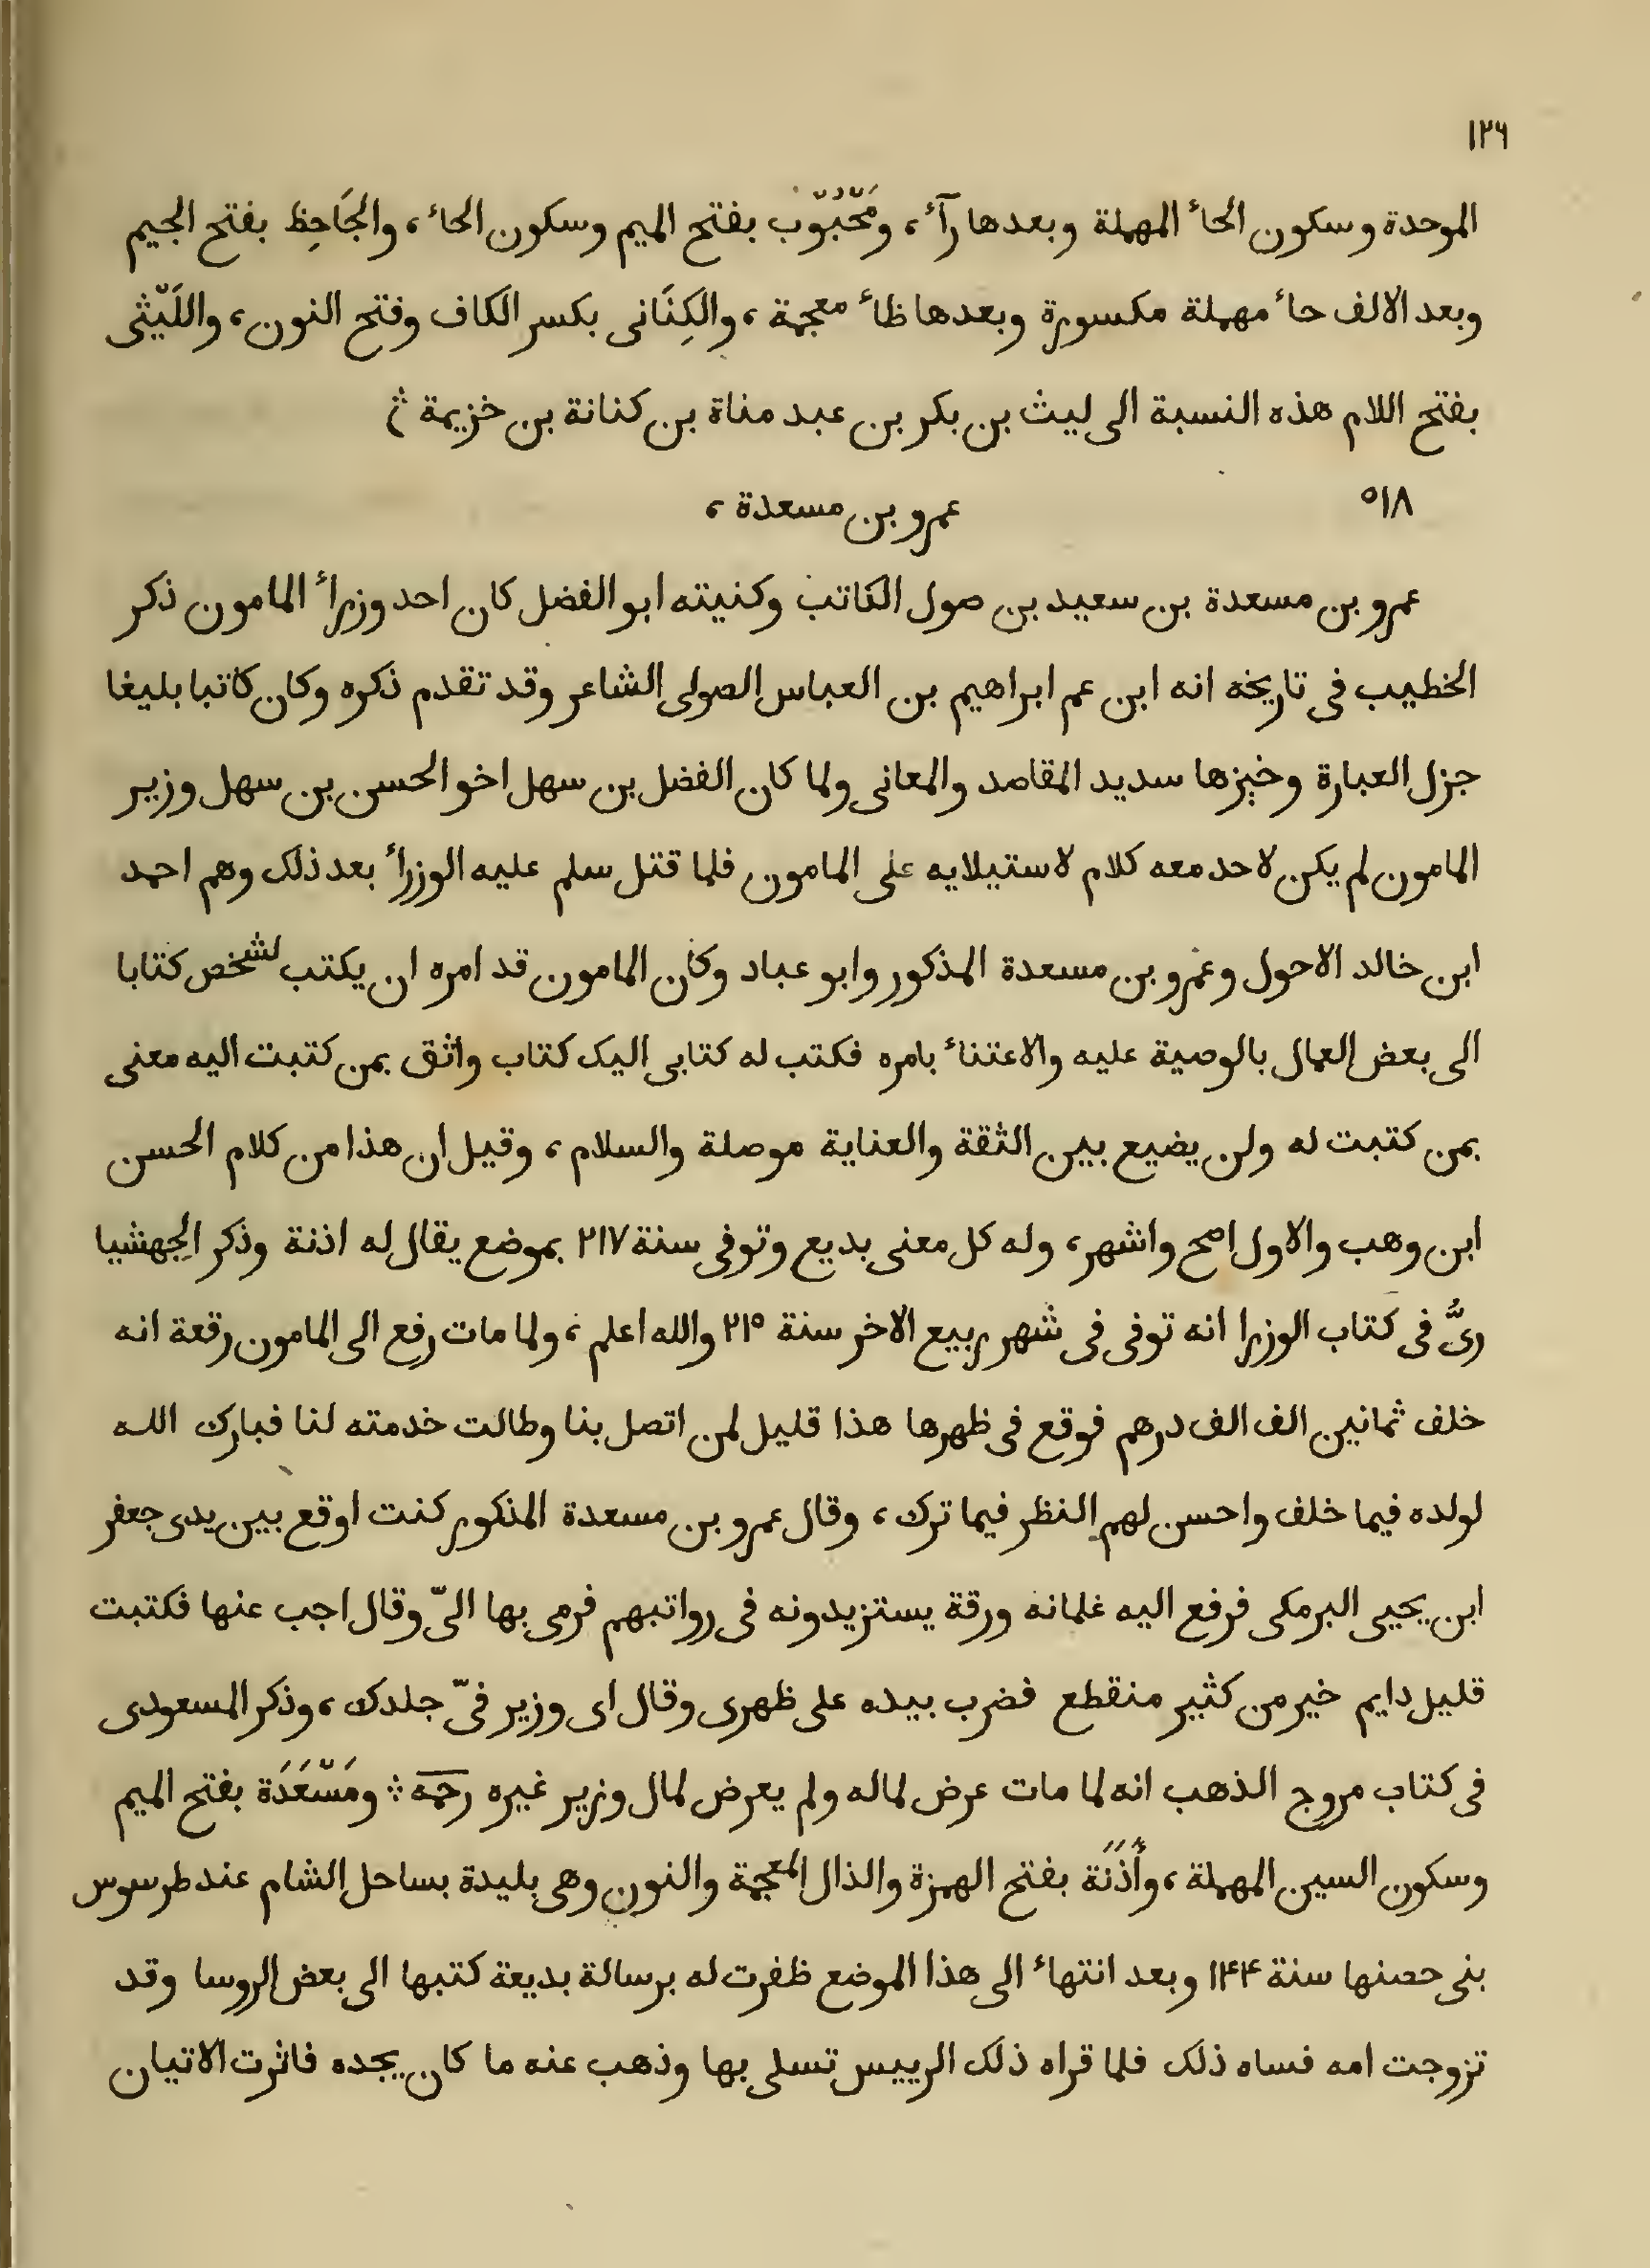 ١٢٦
الموحدة وسكون الحاٴ المهملة وبعدها رآٴ، ومَحْبُوْب بفتح الميم وسكون الحاٴ، والجَاحِظ بفتح الجيم
وبعد الالف حاٴ مهملة مكسورة وبعدها ظاٴ معجمة، والكِنَانى بكسر الكاف وفتح النون، واللَيْثى
بفتح اللام هذه النسبة الى ليث بن بكر بن عبد مناة بن كنانة بن خزيمة
٥١٨ عمرو بن مسعدة،
عمرو بن مسعدة بن سعيد بن صول الكاتب وكنيته ابو الفضل كان احد وزراٴ المامون ذكر
الخطيب فى تاريخه انه ابن عم ابراهيم بن العباس الصولى الشاعر وقد تقدم ذكره وكان كاتبا بليغا
جزل العبارة وخيزها سديد المقاصد والمعانى ولما كان الفضل بن سهل اخو الحسن بن سهل وزير
المامون لم يكن لاحد معه كلام لاستيلايه على المامون فلما قتل سلم عليه الوزراٴ بعد ذلك وهم احمد
ابن خالد الاحول وعمرو بن مسعدة المذكور وابو عباد وكان المامون قد امره ان يكتب لشخص كتابا
الى بعض العمال بالوصية عليه والاعتناٴ بامره فكتب له كتابى اليك كتاب واثق بمن كتبت اليه معنى
بمن كتبت له ولن يضيع بين الثقة والعناية موصلة والسلام، وقيل ان هذا من كلام الحسن
ابن وهب والاول اصح واشهر، وله كل معنى بديع وتوفى سنة ٢١٧ بموضع يقال له اذنة وذكر الجِهشيا
رىُّ فى كتاب الوزرا انه توفى فى شهر ربيع الاخر سنة ٢١٥ والله اعلم، ولما مات رفع الى المامون رقعة انه
خلف ثمانين الف الف درهم فوقع فى ظهرها هذا قليل لمن اتصل بنا وطالت خدمته لنا فبارك الله
لولده فيما خلف واحسن لهم النظر فيما ترك، وقال عمرو بن مسعدة المذكور كنت اوقع بين يدى جعفر
ابن يحيى البرمكى فرفع اليه غلمانه ورقة يستزيدونه فى رواتبهم فرمى بها الىّ وقال اجب عنها فكتبت
قليل دايم خير من كثير منقطع فضرب بيده على ظهرى وقال اى وزير فىّ جلدك، وذكر المسعودى
فى كتاب مروج الذهب انه لما مات عرض لماله ولم يعرض لمال وزير غيره رحمه ؞ ومَسْعَدَة بفتح الميم
وسكون السين المهملة، وأَذَنَة بفتح الهمزة والذال المعجمة والنون وهى بليدة بساحل الشام عند طرسوس
بنى حصنها سنة ١۴۴ وبعد انتهاٴ الى هذا الموضع ظفرت له برسالة بديعة كتبها الى بعض الروسا وقد
تزوجت امه فساه ذلك فلما قراه ذلك الرييس تسلى بها وذهب عنه ما كان يجده فاثرت الاتيان